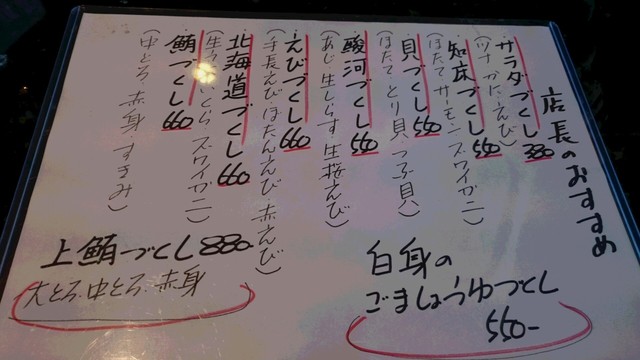 店長のおすすめ
・サラダづくし 330
(ツナ・かに・えび)
・知床づくし 550
(ほたて サーモン ズワイガニ)
・貝づくし 550
(ほたて とり貝 つぶ貝)
・駿河づくし 550
(あじ 生しらす 生桜えび)
・えびづくし 660
(手長えび・ぼたんえび・赤えび)
・北海道づくし 660
いくら ズワイガニ)
・鮪づくし 660
(中とろ 赤身 すきみ)
白身の
ごましょうゆづくし
550-
上鮪づくし 880-
大とろ・中とろ・赤身